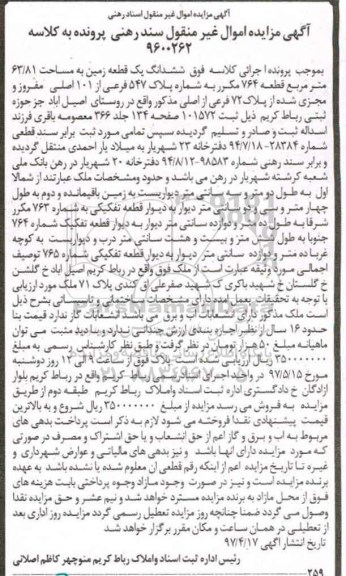 آگهی مزایده اموال غیر منقول اسناد رهنی
آگهی مزایده اموال غیر منقول سند رهنی پرونده به کلاسه
۹۶۰۰۲۶۲
بموجب پرونده اجرائی کلاسه فوق ششدانگ یک قطعه زمین به مساحت ۶۳/۸۱
متر مربع قطعه ۷۶۴ مکرر به شماره پلاک ۵۴۷ فرعی از ۱۰۱ اصلی مفروز و
مجزی شده از پلاک ۷۲ فرعی از اصلی مذکور واقع در روستای اصیل آباد جز حوزه
ثبتی رباط کریم ذیل ثبت ۱۰۱۵۷۲ صفحه ۱۳۴ جلد ۳۶۶ معصومه باقری فرزند
اسداله ثبت و صادر و تسلیم گردیده سپس تمامی مورد ثبت برابر سند قطعی
شماره ۲۸۳۸۴-۹۴/۷/۱۸ دفترخانه ۲۳ شهریار به میلاد یار احمدی منتقل گردیده
و برابر سند رهنی شماره ۹۸۵۸۳-۹۴/۸/۱۲ دفترخانه ۲۰ شهریار در رهن بانک ملی
شعبه کرشته شهریار در رهن می باشد و حدود ومشخصات ملک عبارتند از شمالا
اول به طول دو متر و سه سانتی متر دیواریست به زمین باقیمانده و دوم به طول
چهار متر و سی و دو سانتی متر دیوار به دیوار قطعه تفکیکی به شماره ۷۶۳ مکرر
شرقا به طول ده متر و دوازده سانتی متر دیوار به دیوار قطعه تفکیک شماره ۷۶۴
جنوبا به طول شش متر و بیست و هشت سانتی متر درب و دیواریست به کوچه
غربا ده متر و دوازده سانتی متر دیوار به دیوار قطعه تفکیکی شماره ۷۶۵ توصیف
اجمالی مورد وثیقه عبارت است از ملک فوق واقع در رباط کریم اصیل آباد خ گلشن
خ گلستان خ شهید باکری ک شهید صفرعلی اق کندی پلاک ۷۱ ملک مورد ارزیابی
با توجه به تحقیقات بعمل آمده دارای مشخصات ساختمانی و تاسیساتی بشرح ذیل
است ملک مذکور دارای انشعابات آب و برق می باشد انشعابات گاز ندارد قیمت بنا
حدود ۱۶ سال از نظیر اجاره بندی ارزش چندانی ندارد و با دید مثبت می توان
ماهیانه مبلغ ۵۰ هزار تومان در نظر گرفت و طبق نظر کارشناس رسمی به مبلغ
۳۵۰۰۰۰۰۰۰ ریال ارزیابی شده است پلاک فوق از ساعت ۹ الی ۱۲ روز دوشنبه
مورخ ۹۷/۵/۱۵ در واحد اجرای اسناد رسمی رباط کریم واقع در رباط کریم بلوار
آزادگان خ دادگستری اداره ثبت اسناد واملاک رباط کریم طبقه دوم از طریق
مزایده به فروش می رسد مزایده از مبلغ ۳۵۰۰۰۰۰۰۰ ریال شروع و به بالاترین
قیمت پیشنهادی نقدا فروخته می شود لازم به ذکر است پرداخت بدهی های
مربوط به آب و برق و گاز اعم از حق انشعاب و یا حق اشتراک و مصرف در صورتی
که مورد مزایده دارای آنها باشد و نیز بدهی های مالیاتی و عوارض شهرداری و
غیره تا تاریخ مزایده اعم از اینکه رقم قطعی آن معلوم شده یا نشده باشد به عهده
برنده مزایده است و نیز در صورت وجود مازاد وجوه پرداختی بابت هزینه های
فوق از محل مازاد به برنده مزایده مسترد خواهد شد و نیم عشر و حق مزایده نقدا
وصول می گردد ضمنا چنانچه روز مزایده تعطیل رسمی گردد مزایده روز اداری بعد
از تعطیلی در همان ساعت و مکان مقرر برگزار خواهد شد
تاریخ انتشار آگهی ۹۷/۴/۱۷
رئیس اداره ثبت اسناد واملاک رباط کریم منوچهر کاظم اصلانی
۲۵۹